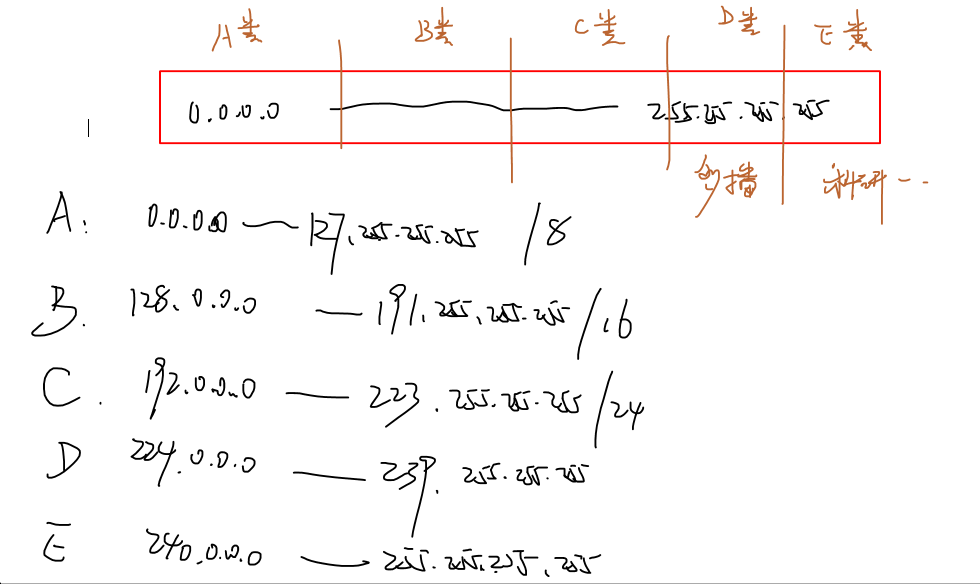 A类 B类 C类 D类 E类
0.0.0.0 255.255.255.255
多播 科研
A: 0.0.0.0 — 127.255.255.255 /8
B. 128.0.0.0 — 191.255.255.255 /16
C. 192.0.0.0 — 223.255.255.255 /24
D 224.0.0.0 — 239.255.255.255
E 240.0.0.0 — 255.255.255.255